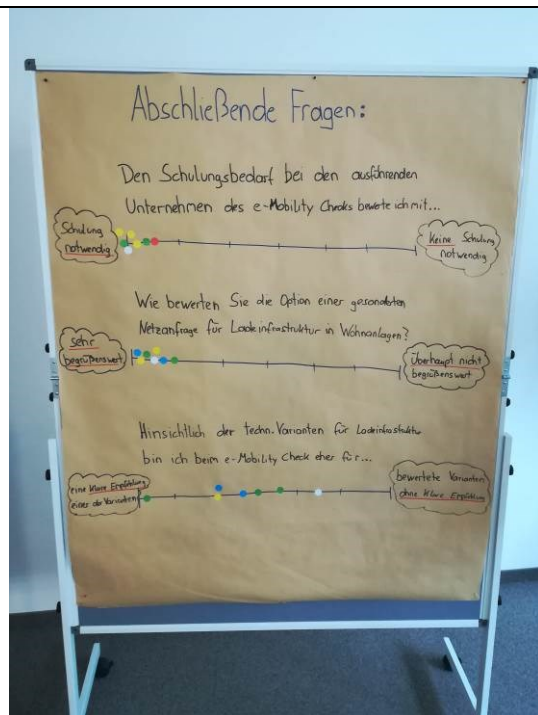 Abschließende Fragen:
Den Schulungsbedarf bei den ausführenden
Unternehmen des e-Mobility Checks bewerte ich mit...
Schulung
notwendig
Keine Schulung
notwendig
Wie bewerten Sie die Option einer gesonderten
Netzanfrage für Ladeinfrastruktur in Wohnanlagen?
sehr
begrüßenswert
Überhaupt nicht
begrüßenswert
Hinsichtlich der techn. Varianten für Ladeinfrastruktur
bin ich beim e-Mobility Check eher für...
eine klare Empfehlung
einer der Varianten
bewertete Varianten
ohne klare Empfehlung